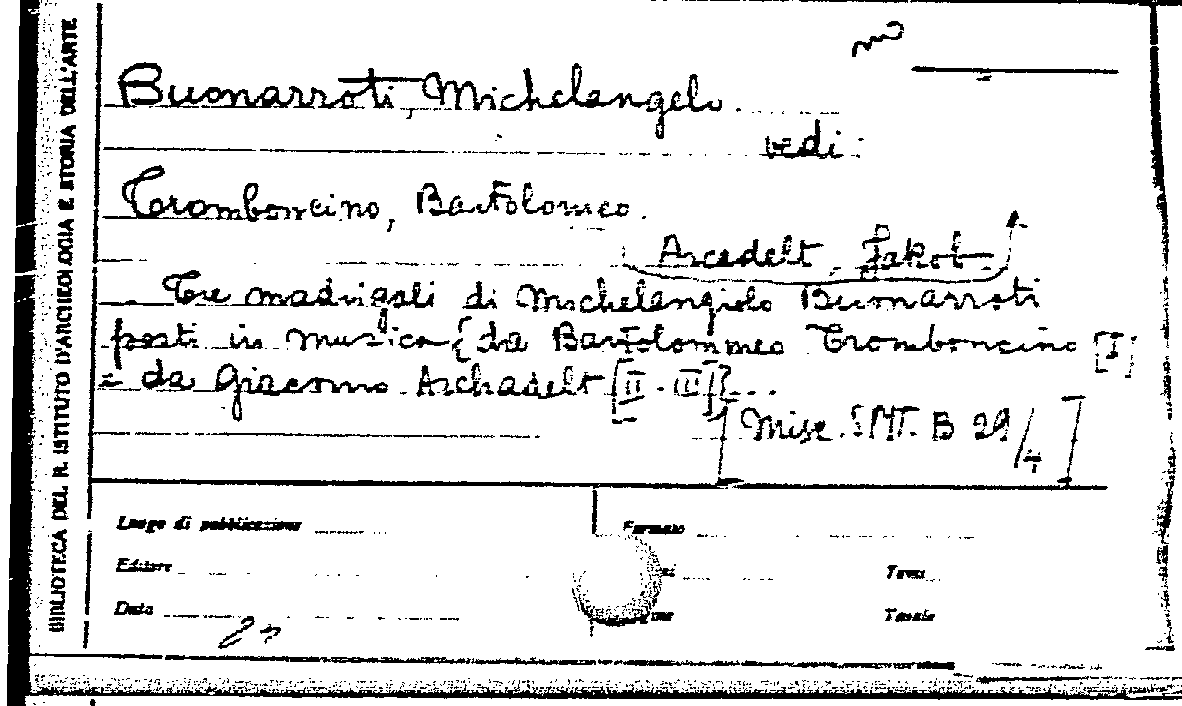 BIBLIOTECA DEL R. ISTITUTO D'ARCHEOLOGIA E STORIA DELL'ARTE
Buonarroti, Michelangelo.
vedi:
Tromboncino, Bartolomeo.
Arcadelt, Jakob.
Tre madrigali di Michelangiolo Buonarroti
posti in musica {da Bartolommeo Tromboncino [I]
= da Giacomo Archadelt [II - III]}...
[Misc. B 29/4]
Luogo di pubblicazione
Formato
Editore
Tomi
Data
Tavole